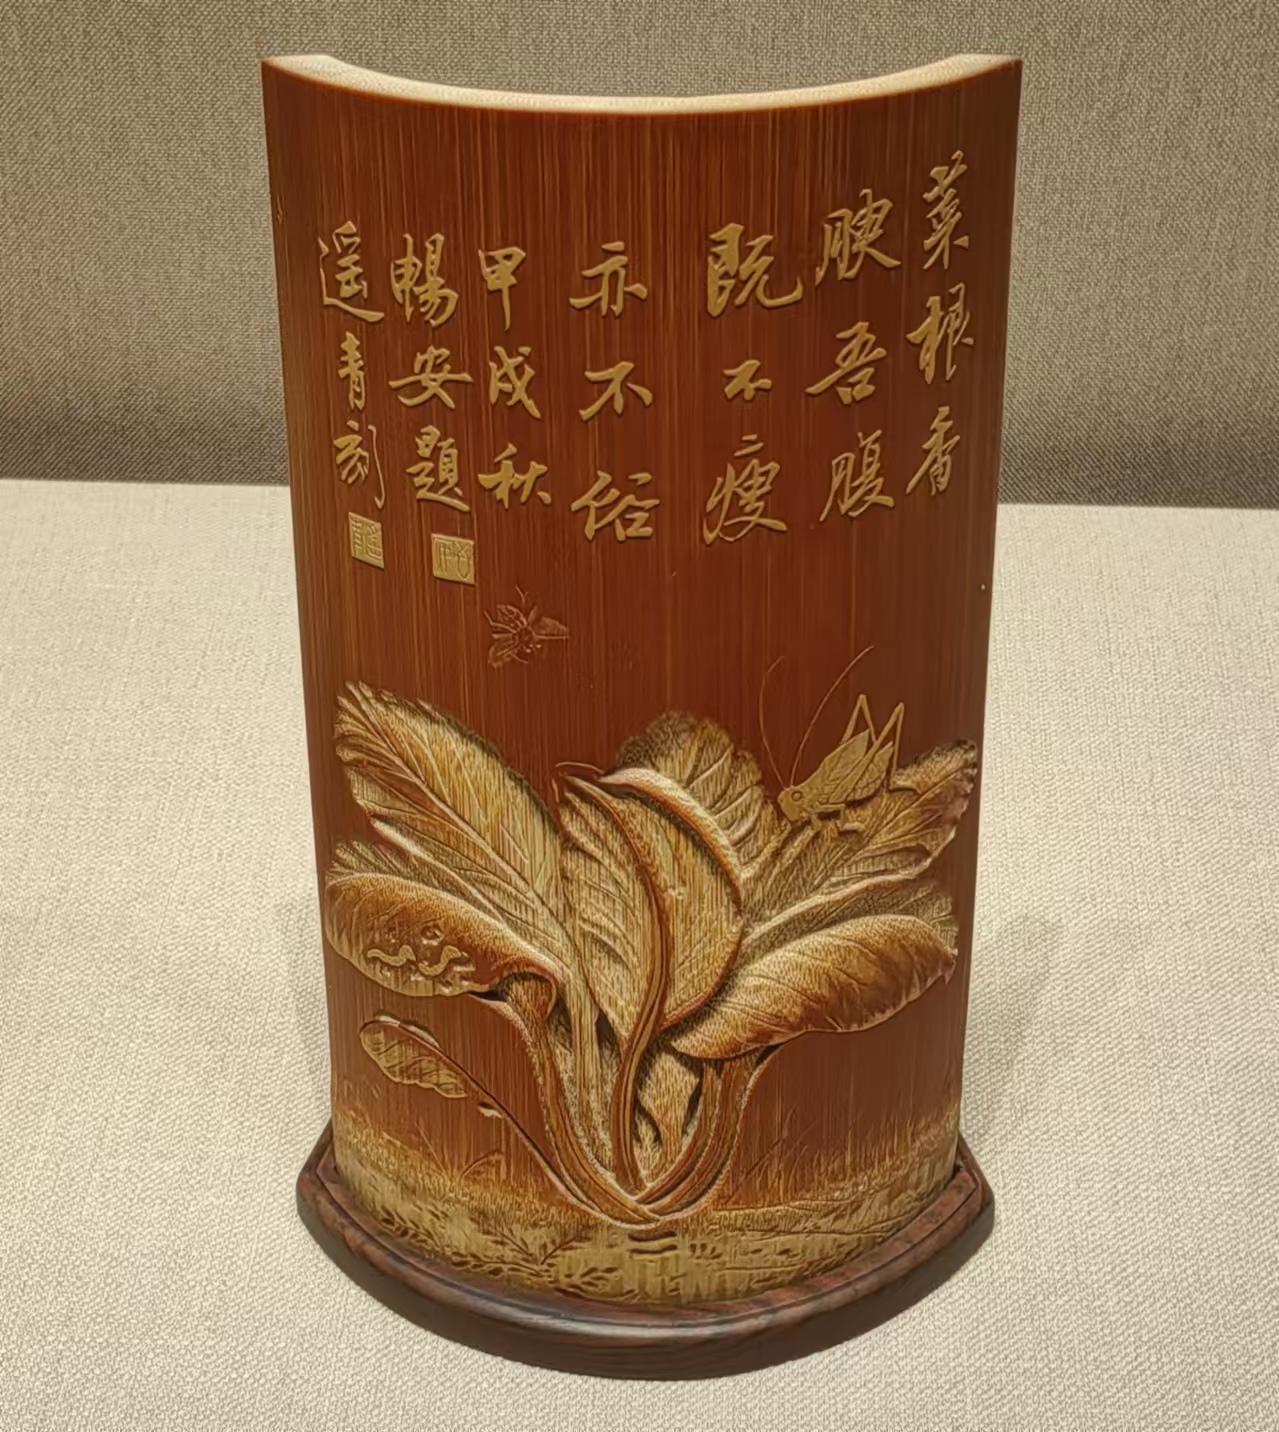 菜根香
腴吾腹
既不瘦
亦不俗
甲戌秋
暢安題
遥青刻